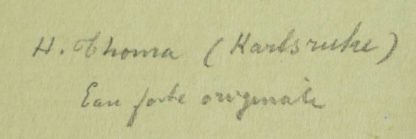 H. Thoma (Karlsruhe)
Eau forte originale